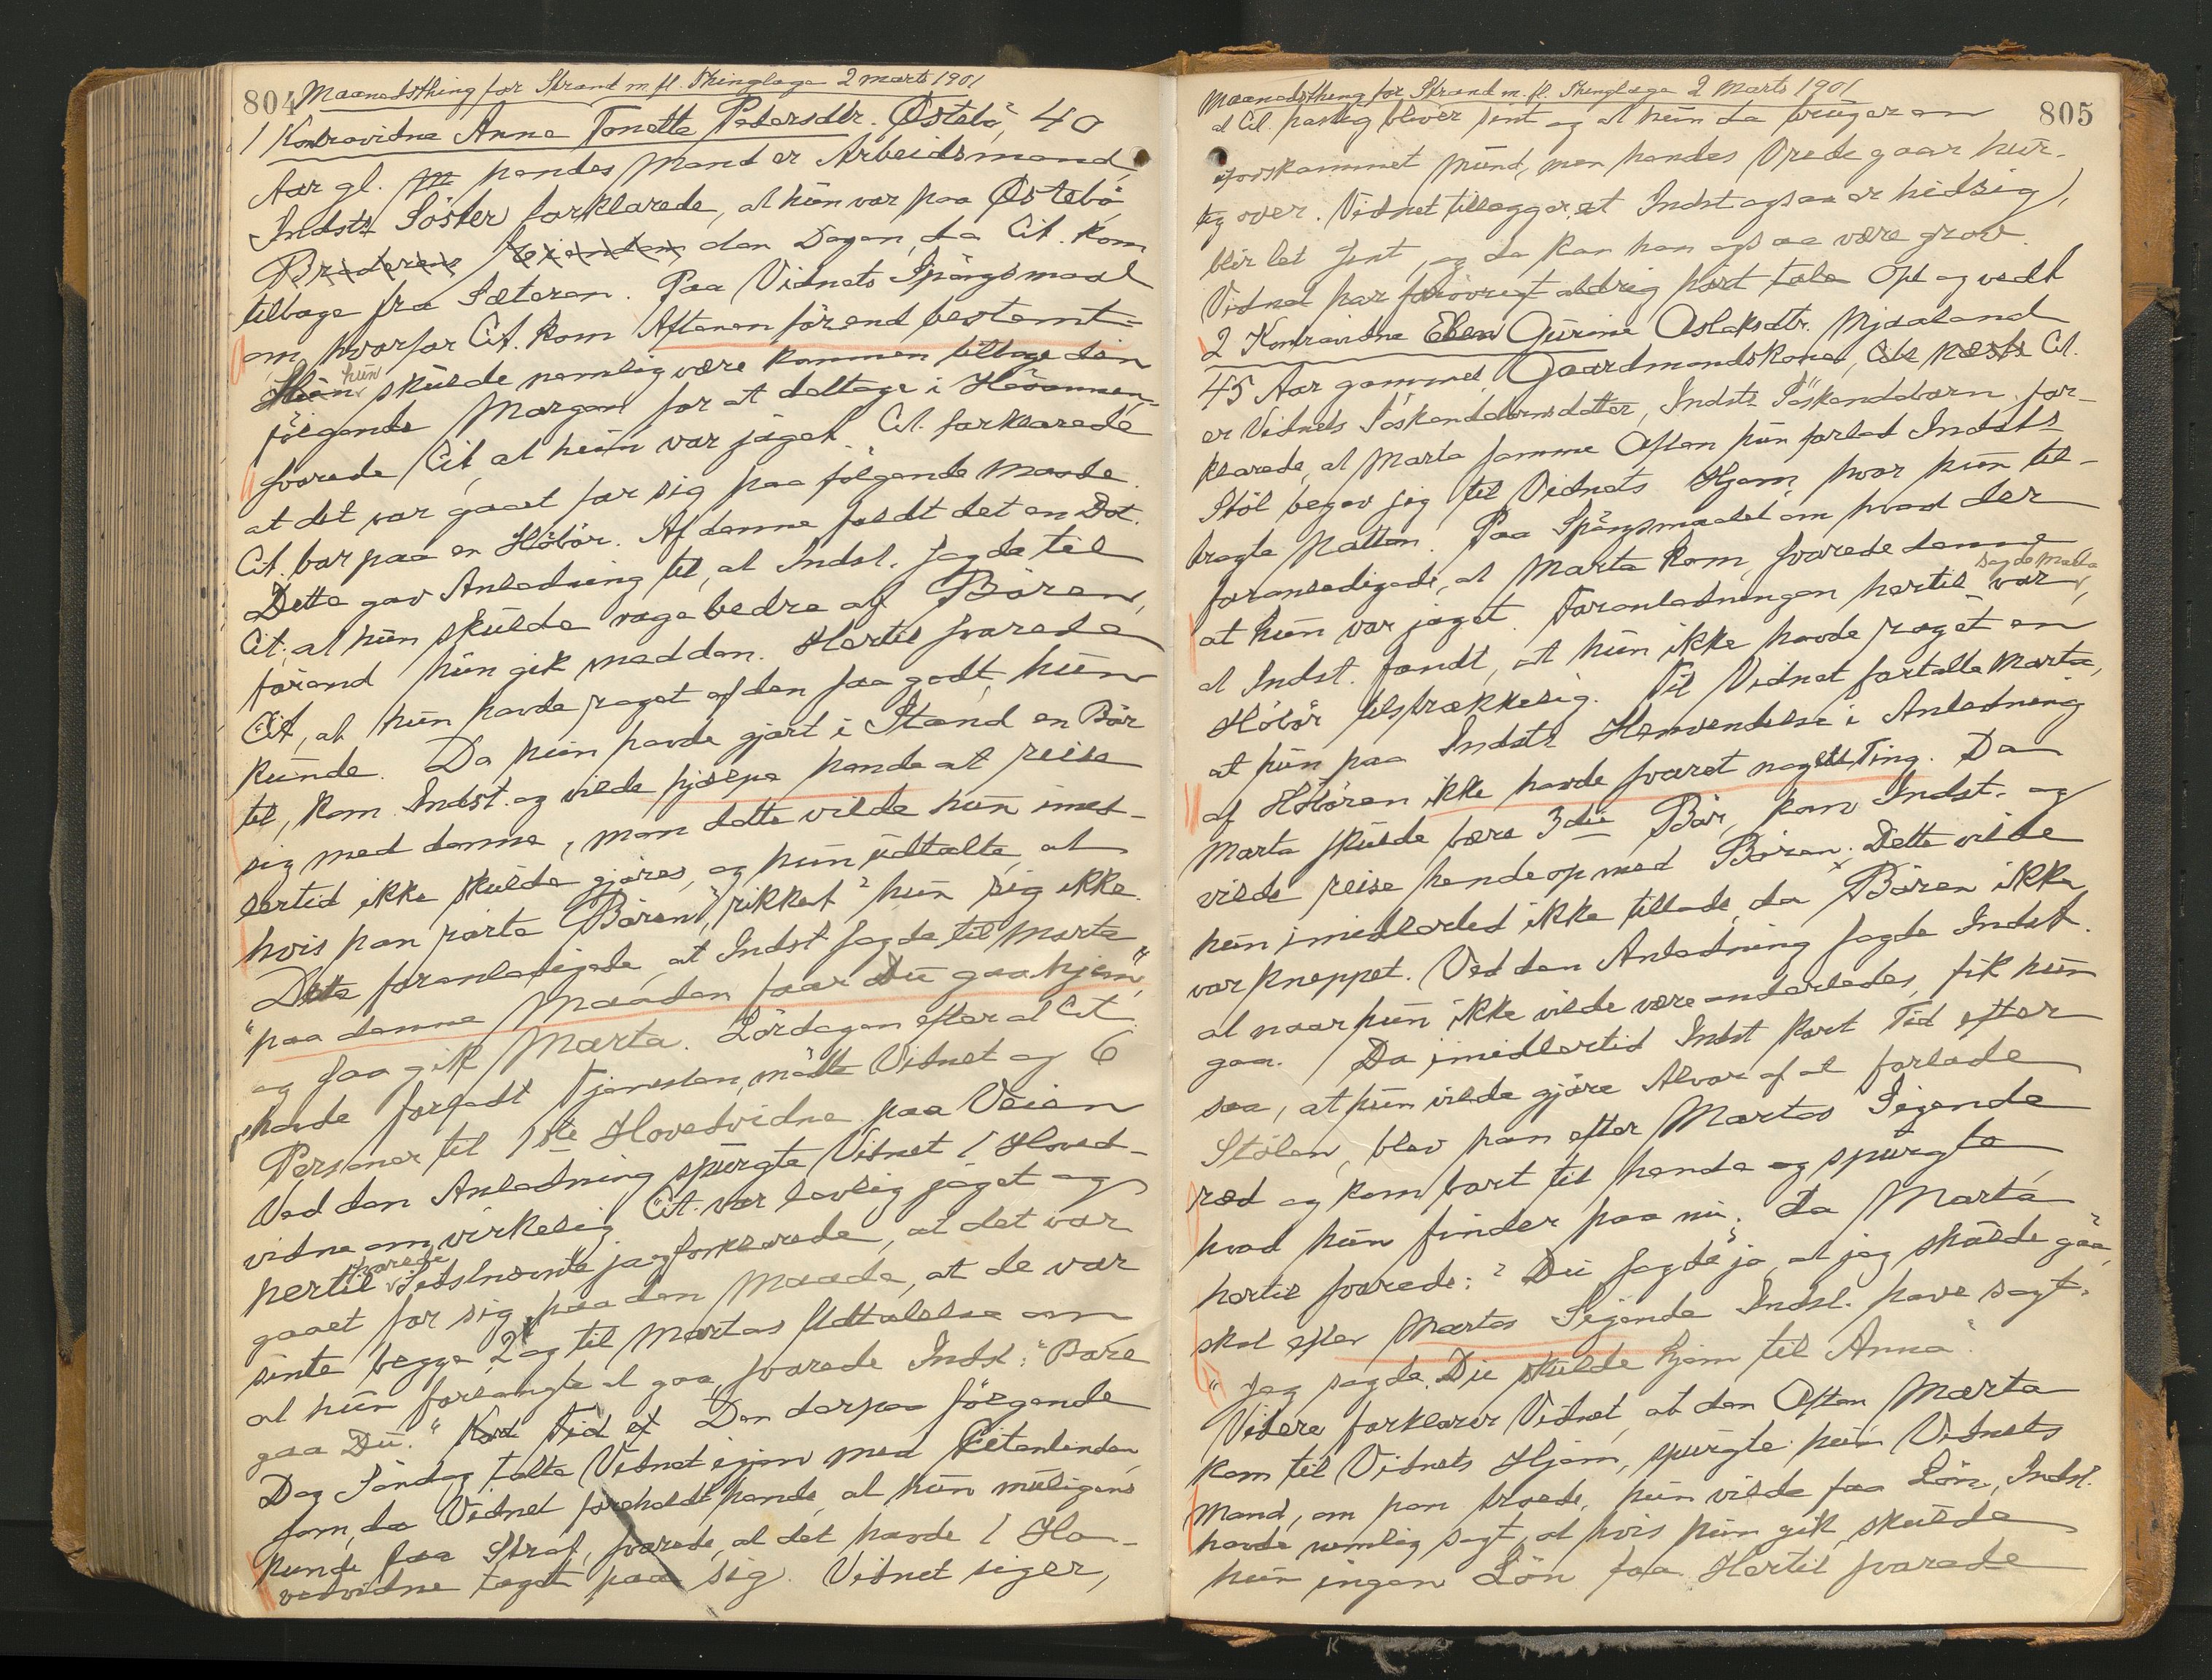 804 Maanedsthing for Strand m. fl. Thinglage 2 marts 1901
1 Kontravidne Anne Tonette Pedersdtr. Østebö, 40
Aar gl. hendes Mand er Arbeidsmand,
Indsts Söster forklarede, at hun var paa Østebö
Broderens Eiendom den Dagen, da Cit. kom
tilbage fra Sæteren. Paa Vidnets Spörgsmaal
om, hvorfor Cit. kom Aftenen förend bestemt-
hun skulde nemlig være kommen tilbage den
fölgende Morgen for at deltage i Höaannen-
svarede Cit, at hun var jaget. Cit. forklarede
at det var gaaet for sig paa fölgende Maade.
Cit. bar paa en Höbör. Af denne faldt det en Dot.
Dette gav Anledning til, at Indst. sagde til
Cit., at hun skulde rage bedre af Bören,
förend hun gik med den. Hertil svarede
Cit, at hun havde raget af den saa godt, hun
kunde. Da hun havde gjort i Stand en Bör
til, kom Indst. og vilde hjælpe hende at reise
sig med denne, men dette vilde hun imid-
lertid ikke skulde gjöres, og hun udtalte, at
hvis han rörte Bören, "rikket" hun sig ikke.
Dette foranledigede, at Indst sagde til Marta
"paa denne Maaden faar Du gaa hjem",
og saa gik Marta. Lördagen efter at Cit.
havde forladt Tjenesten, mödte Vidnet og 6
Personer til 1ste Hovedvidne paa Veien
Ved den Anledning spurgte Vidnet 1 Hoved-
vidne om virkelig Cit. var lovlig jaget og
hertil svarede forklarede, at det var
gaaet for sig paa den Maade, at de var
sinte begge 2 og til Martas Udtalelse om
at hun forlangte at gaa, svarede Indst: "Bare
gaa Du." Kort Tid ef Den derpaa fölgende
Dag Söndag talte Vidnet igjen med Citantinden
som, da Vidnet foreholdt hende, at hun muligens
kunde faa Straf, svarede, at det havde 1 Ho-
vedvidne taget paa sig. Vidnet siger,
Maanedsthing for Strand m. fl. Thinglage 2 Marts 1901 805
at Cit. hastig bliver sint og at hun da bruger en
uforskammet mund, men hendes Vrede gaar hur-
tig over. Vidnet tillægger, at Indst ogsaa er hidsig,
blir let sint, og da kan han ogsaa være grov.
Vidnet har forövrigt aldrig hört tale Opl og vedt
2 Kontravidne Ellen Gurine Aslaksdtr. Mjaaland
45 Aar gammel, Gaardmandskone, Cit.
er Vidnets Söskendebarnsdatter, Indsts Söskendebarn. for-
klarede, at Marta samme Aften hun forlod Indsts
Stöl begav sig til Vidnets Hjem, hvor hun til-
bragte Natten. Paa Spörgsmaalet om hvad der
foranledigede, at Marta kom, svarede denne
at hun var jaget. Foranledningen hertil var, sagde Marta,
at Indst. fandt, at hun ikke havde raget en
Höbör tilstrækkelig. Til Vidnet fortalte Marta,
at hun paa Indsts Henvendelse i Anledning
af Höbören ikke havde svaret nogetting. Da
Marta skulde bære 3die Bör, kom Indst. og
vilde reise hende op med Bören. Dette vilde
hun imidlertid ikke tillade, da Bören ikke
var kneppet. Ved den Anledning sagde Indst.
at naar hun ikke vilde være anderledes, fik hun
gaa. Da imidlertid Indst kort Tid efter
saa, at hun vilde gjöre Alvor af at forlade
Stölen, blev han efter Martas Sigende
ræd og kom bort til hende og spurgte
hvad hun finder paa nu; da Marta
hertil svarede: "Du sagde jo, at jeg skulde gaa",
skal efter Martas Sigende Indst. have sagt:
"Jeg sagde, Du skulde hjem til Anna".
Videre forklarer Vidnet, at den Aften Marta
kom til Vidnets Hjem, spurgte hun Vidnets
Mand, om han troede, hun vilde faa Lön, Indst.
havde nemlig sagt, at hvis hun gik, skulde
hun ingen Lön faa. Hertil svarede